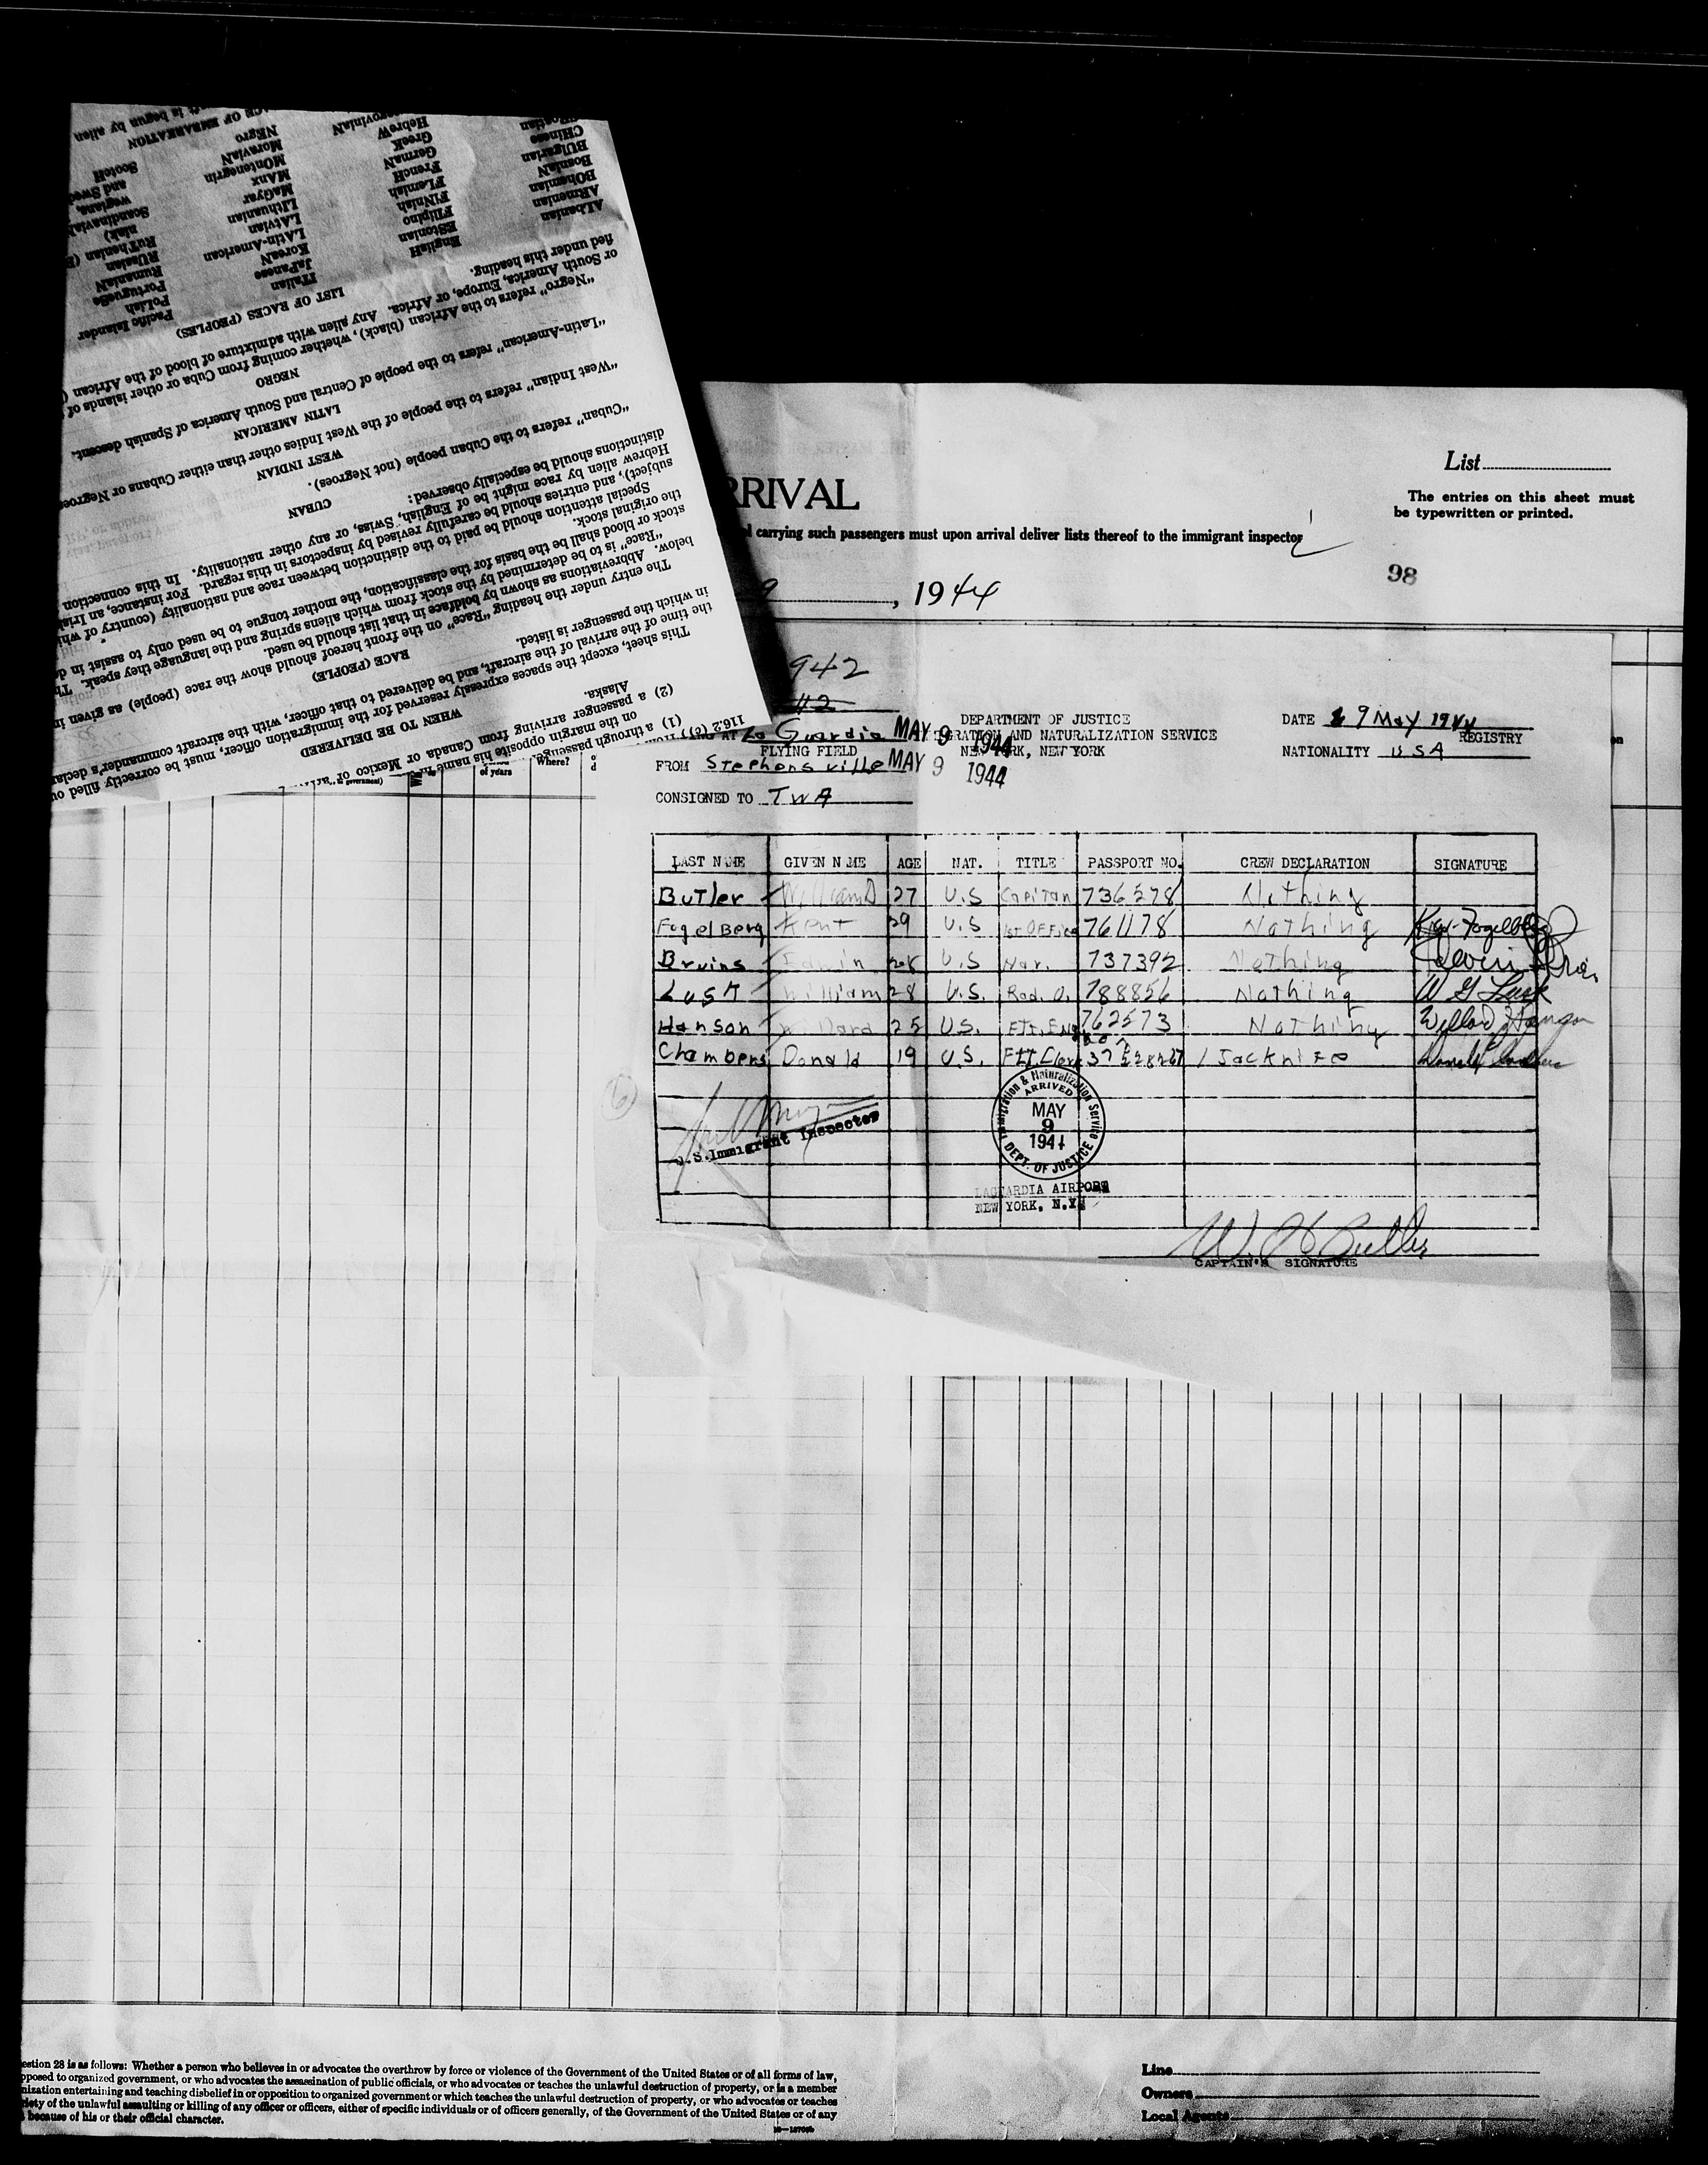 List
RRIVAL
The entries on this sheet must
be typewritten or printed.
carrying such passengers must upon arrival deliver lists thereof to the immigrant inspector
98
9, 1944
942
DEPARTMENT OF JUSTICE
DATE 9 May 1944
La Guardia MAY 9 1944
GRATION AND NATURALIZATION SERVICE
REGISTRY
FLYING FIELD
NEW YORK, NEW YORK
NATIONALITY USA
FROM Stephensville MAY 9 1944
CONSIGNED TO TWA
LAST NAME GIVEN NAME AGE NAT. TITLE PASSPORT NO. CREW DECLARATION SIGNATURE
Butler William 27 U.S Capitan 736278 Nothing
Fogelberg Kent 29 U.S 1st Office 761178 Nothing
Bruins Edwin 28 U.S Nav. 737392 Nothing
Lusk William 28 U.S. Rad. O. 788856 Nothing W G Lusk
Hanson Willard 25 U.S. Flt. Eng 762573 Nothing Willard Hanson
Chambers Donald 19 U.S. Flt. Clerk 1 Jacknife
U.S. Immigrant Inspector
Immigration & Naturalization Service
ARRIVED
MAY
9
1944
DEPT. OF JUSTICE
LAGUARDIA AIRPORT
NEW YORK, N.Y.
W. H Butler
CAPTAIN'S SIGNATURE
of years
Where?
116.2 (c))
(1) a through passenger
on the margin opposite his name
(2) a passenger arriving from Canada or Mexico or
Alaska.
WHEN TO BE DELIVERED
This sheet, except the spaces expressly reserved for the immigration officer, must be correctly filled ou
the time of the arrival of the aircraft, and be delivered to that officer, with the aircraft commander's declar
in which the passenger is listed.
RACE (PEOPLE)
The entry under the heading "Race" on the front hereof should show the race (people) as given in
below. Abbreviations as shown by boldface in that list should be used.
"Race" is to be determined by the stock from which aliens spring and the language they speak. Th
stock or blood shall be the basis for the classification, the mother tongue to be used only to assist in d
the original stock.
Special attention should be paid to the distinction between race and nationality (country of whi
subject), and entries should be carefully revised by inspectors in this regard. For instance, an Irish
Hebrew alien by race might be of English, Swiss, or any other nationality. In this connection
distinctions should be especially observed:
CUBAN
"Cuban" refers to the Cuban people (not Negroes).
WEST INDIAN
"West Indian" refers to the people of the West Indies other than either Cubans or Negroes
LATIN AMERICAN
"Latin-American" refers to the people of Central and South America of Spanish descent.
NEGRO
"Negro" refers to the African (black), whether coming from Cuba or other islands of
or South America, Europe, or Africa. Any alien with admixture of blood of the African (
fied under this heading.
LIST OF RACES (PEOPLES)
Albanian EngliSH ITalian Pacific Islander
ARmenian EStonian JaPanese PoLish
BOhemian FIlipino KoreaN PortugueSe
BosniaN FINnish LAtin-American RumaniaN
BUlgarian FLemish LAtvian RUssian
CHinese FrencH LIthuanian RuThenian (R
GermaN MaGyar niak)
GreeK MANx ScandinaviaN
HebreW MOntenegrin wegians,
MoraviaN and Swed
NEgro ScotcH
ACE OF EMBARKATION
estion 28 is as follows: Whether a person who believes in or advocates the overthrow by force or violence of the Government of the United States or of all forms of law,
pposed to organized government, or who advocates the assassination of public officials, or who advocates or teaches the unlawful destruction of property, or is a member
nization entertaining and teaching disbelief in or opposition to organized government or which teaches the unlawful destruction of property, or who advocates or teaches
iety of the unlawful assaulting or killing of any officer or officers, either of specific individuals or of officers generally, of the Government of the United States or of any
because of his or their official character.
Line
Owners
Local Agents